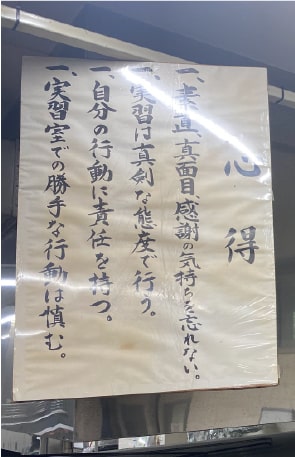 心得
一、素直、真面目、感謝の気持ちを忘れない。
一、実習は真剣な態度で行う。
一、自分の行動に責任を持つ。
一、実習室での勝手な行動は慎む。